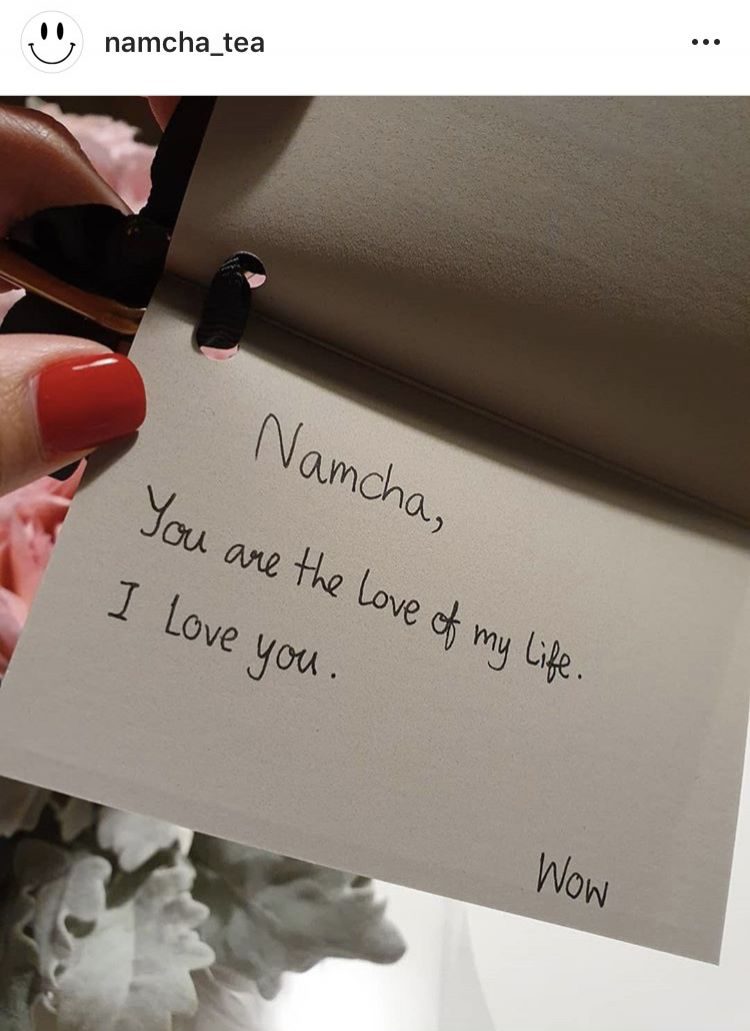 namcha_tea
Namcha,
You are the love of my life.
I love you.
Wow